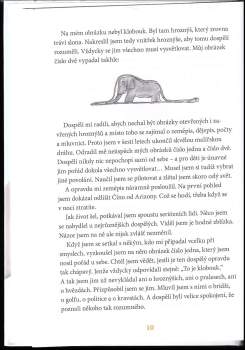 Na mém obrázku nebyl klobouk. Byl tam hroznýš, který zrovna
trávil slona. Nakreslil jsem tedy vnitřek hroznýše, aby tomu dospělí
rozuměli. Vždycky se jim všechno musí vysvětlovat. Můj obrázek
číslo dvě vypadal takhle:
Dospělí mi radili, abych nechal být obrázky otevřených i za-
vřených hroznýšů a místo toho se zajímal o zeměpis, dějepis, počty
a mluvnici. Proto jsem v šesti letech ukončil skvělou malířskou
dráhu. Odradil mě neúspěch mých obrázků číslo jedna a číslo dvě.
Dospělí nikdy nic nepochopí sami od sebe – a pro děti je únavné
jim pořád dokola všechno vysvětlovat… Musel jsem si tudíž vybrat
jiné povolání. Naučil jsem se pilotovat a zlétal jsem skoro celý svět.
A opravdu mi zeměpis náramně posloužil. Na první pohled
jsem dokázal odlišit Čínu od Arizony. Což se hodí, třeba když se
v noci ztratíte.
Jak život šel, potkával jsem spoustu seriózních lidí. Něco jsem
se nabydlel u nejrůznějších dospělých. Viděl jsem je hodně zblízka.
Názor jsem na ně ale nijak zvlášť nezměnil.
Když jsem se setkal s někým, kdo mi připadal vcelku při
smyslech, vyzkoušel jsem na něm obrázek číslo jedna, který jsem
nosil pořád u sebe. Chtěl jsem vědět, jestli je ten dospělý opravdu
tak chápavý. Jenže vždycky odpovídali stejně: „To je klobouk.“
A tak jsem jim už nevykládal ani o hroznýších, ani o pralesech, ani
o hvězdách. Přizpůsobil jsem se jim. Mluvil jsem s nimi o bridži,
o golfu, o politice a o kravatách. A dospělí byli velice spokojení, že
poznali někoho tak rozumného.
10